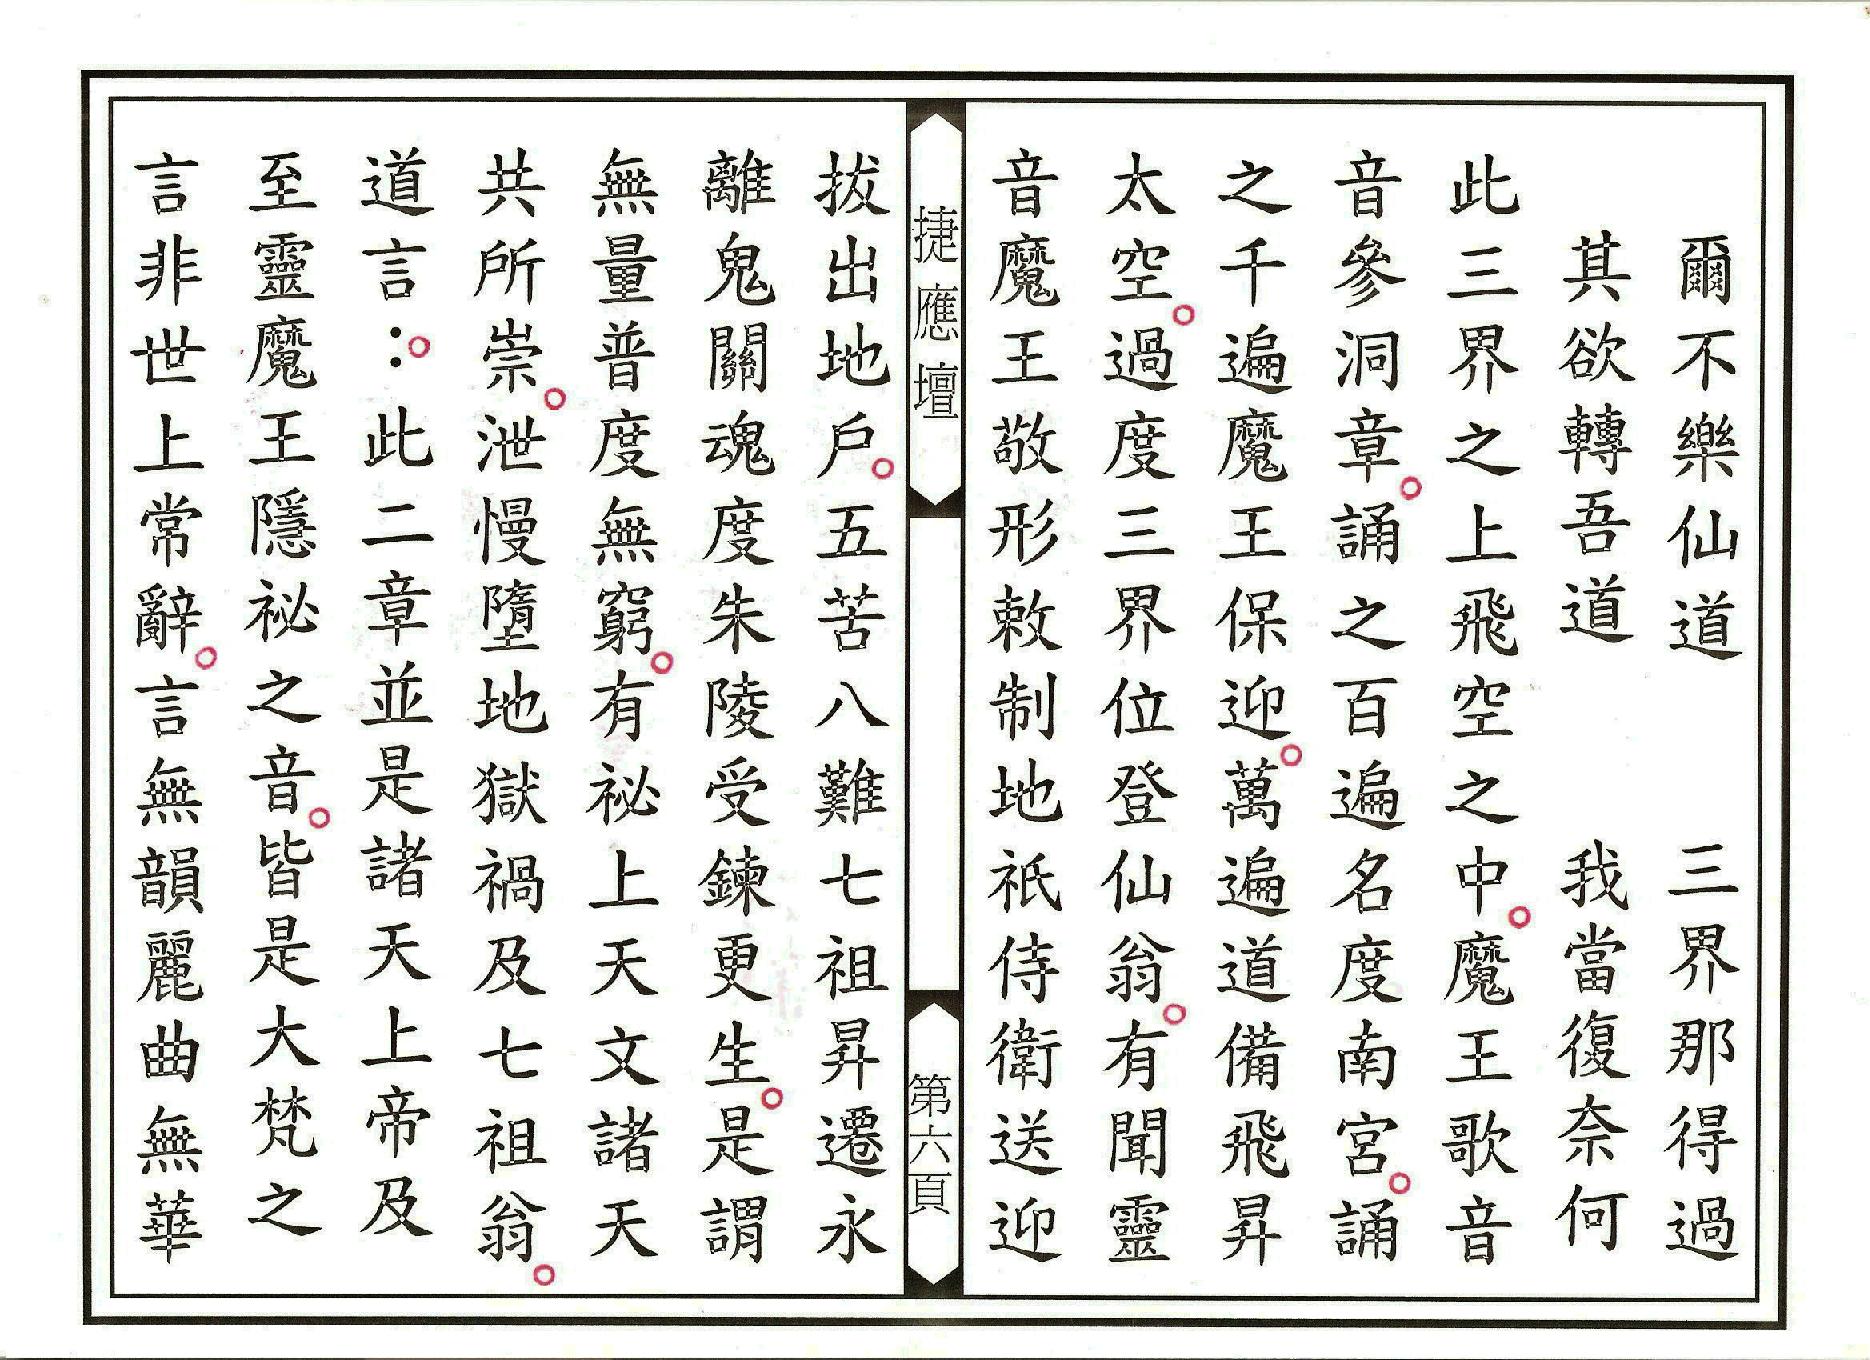 爾不樂仙道　三界那得過
其欲轉吾道　我當復奈何
此三界之上飛空之中。魔王歌音
音參洞章。誦之百遍名度南宮。誦
之千遍魔王保迎。萬遍道備飛昇
太空。過度三界位登仙翁。有聞靈
音魔王敬形敕制地祇侍衛送迎
捷應壇
第六頁
拔出地戶。五苦八難七祖昇遷永
離鬼關魂度朱陵受鍊更生。是謂
無量普度無窮。有祕上天文諸天
共所崇。泄慢墮地獄禍及七祖翁。
道言：。此二章並是諸天上帝及
至靈魔王隱祕之音。皆是大梵之
言非世上常辭。言無韻麗曲無華